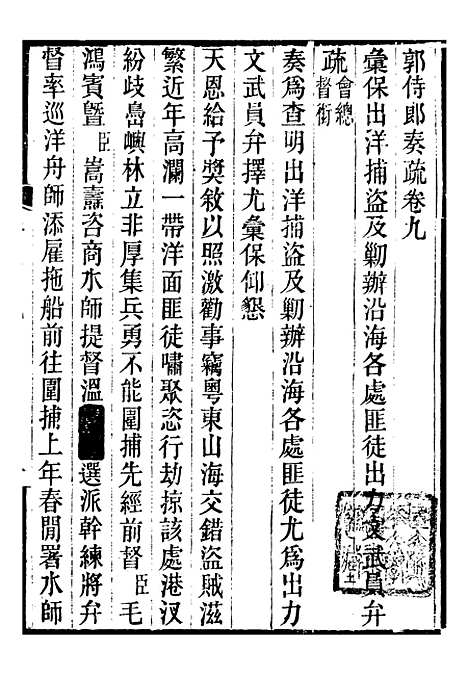 郭侍郎奏疏卷九
彙保出洋捕盜及勦辦沿海各處匪徒出力文武員弁
疏會總督銜
奏爲查明出洋捕盜及勦辦沿海各處匪徒尤爲出力
文武員弁擇尤彙保仰懇
天恩給予獎敘以照激勸事竊粤東山海交錯盜賊滋
繁近年高瀾一帶洋面匪徒嘯聚恣行劫掠該處港汊
紛歧島嶼林立非厚集兵勇不能圍捕先經前督臣毛
鴻賓暨臣嵩燾咨商水師提督溫選派幹練將弁
督率巡洋舟師添雇拖船前往圍捕上年春閒署水師